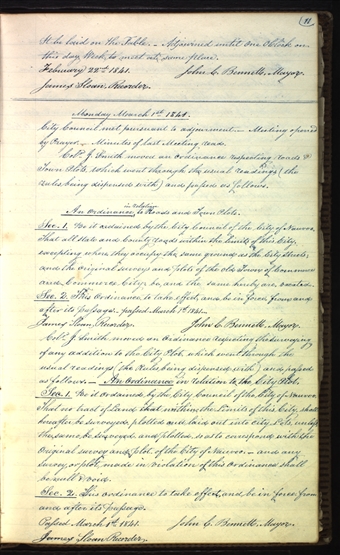 11
It be laid on the Table. — Adjourned until One O'Clock on
this day Week, to meet at same place.
February 22nd 1841. John C. Bennett, Mayor.
James Sloan, Recorder.
Monday March 1st 1841.
City Council met pursuant to adjournment. — Meeting opened
by Prayer. — Minutes of last Meeting read.
Col. J. Smith moved an Ordinance respecting roads &
Town Plots, which went through the usual readings (the
rules being dispensed with) and passed as follows.
An Ordinance in relation to Roads and Town Plots.
Sec. 1. Be it ordained by the City Council of the City of Nauvoo,
That all State and County roads within the limits of this City,
excepting where they occupy the same ground as the City Streets,
and the original surveys and plots of the old Town of Commerce
and, Commerce City, be, and the same hereby are, vacated.
Sec. 2. This Ordinance to take effect, and be in force, from and
after its passage. passed March 1st 1841.
James Sloan, Recorder. John C. Bennett, Mayor.
Col. J. Smith moved an Ordinance respecting the surveying
of any addition to the City Plot, which went through the
usual readings (the Rules being dispensed with) and passed
as follows. — An Ordinance in relation to the City Plot.
Sec. 1. Be it ordained by the City Council of the City of Nauvoo,
That no tract of Land within the Limits of this City, shall
hereafter be surveyed, plotted and laid out into City Lots, unless
the same, be surveyed and plotted, so as to correspond with the
Original survey and plot of the City of Nauvoo. — and any
survey, or plot, made in violation of this Ordinance shall
be null & void.
Sec. 2. This ordinance to take effect, and be in force, from
and after its passage.
Passed March 1st 1841. John C. Bennett, Mayor.
James Sloan Recorder.